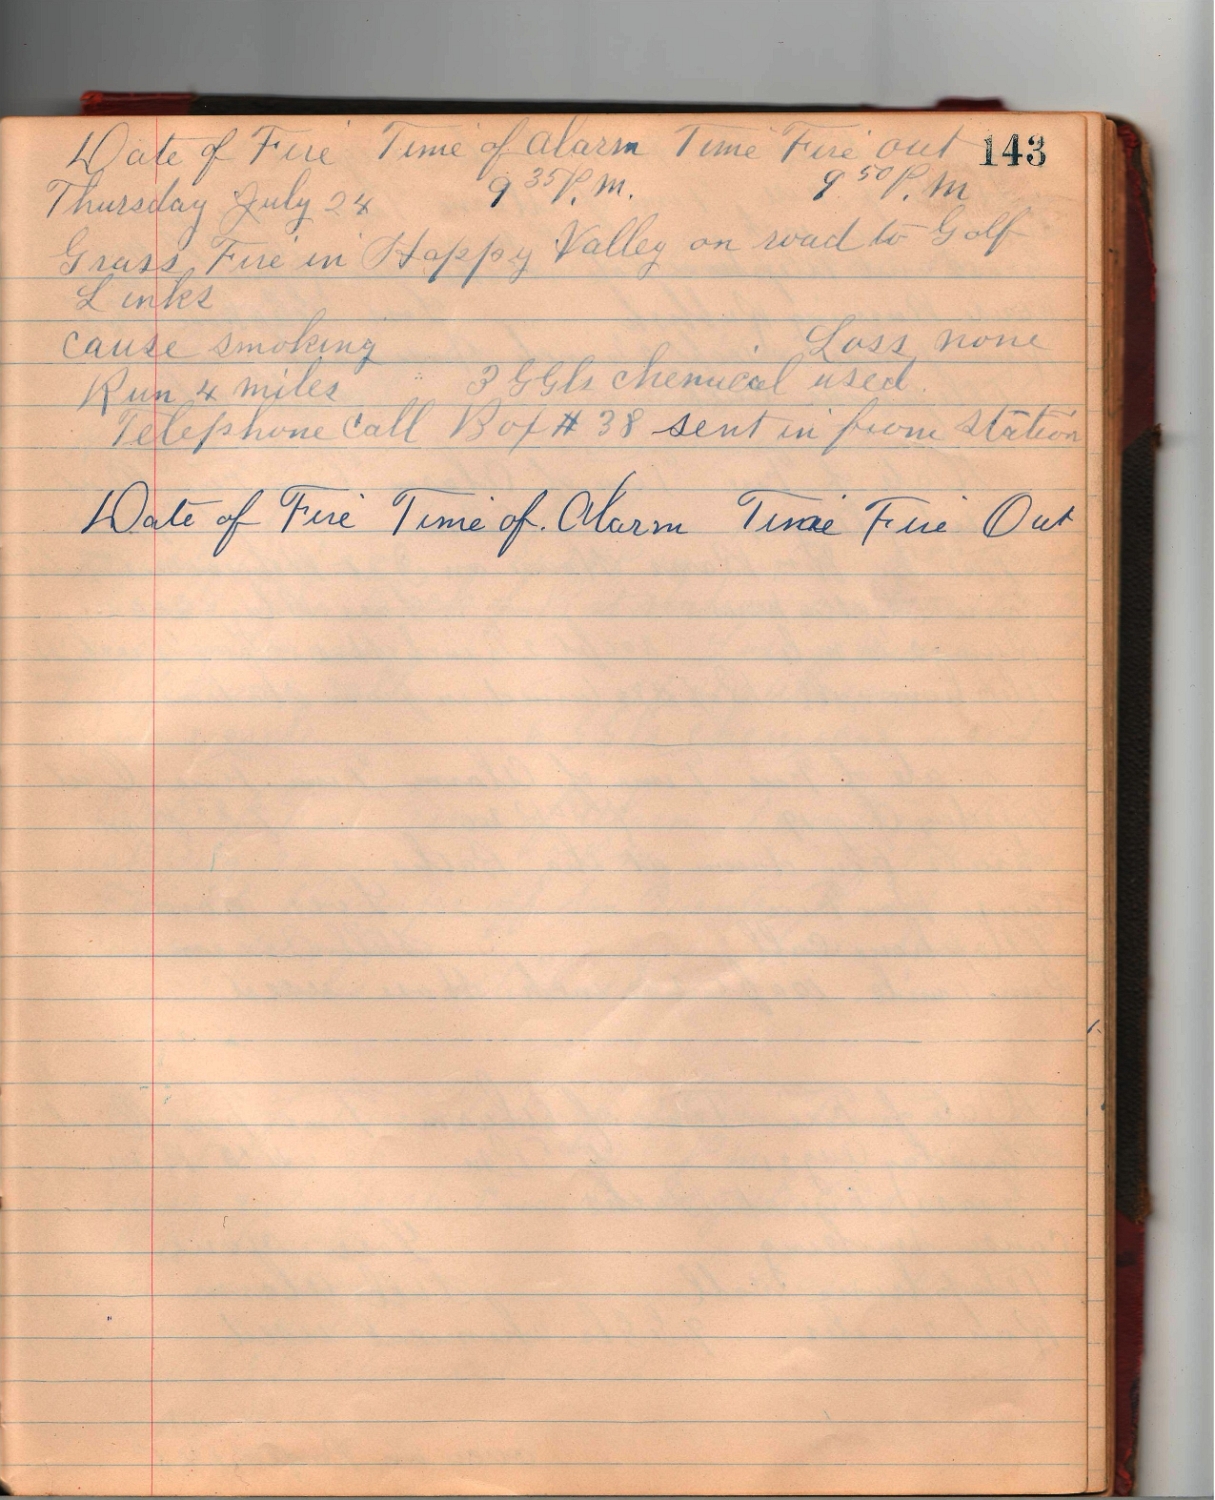 Date of Fire Time of Alarm Time Fire out 143
Thursday July 24 9 35 P.M. 9 50 P.M
Grass Fire in Happy Valley on road to Golf
Links
cause smoking Loss none
Run 4 miles 3 GGls chemical used.
Telephone Call Box # 38 sent in from station
Date of Fire Time of Alarm Time Fire Out